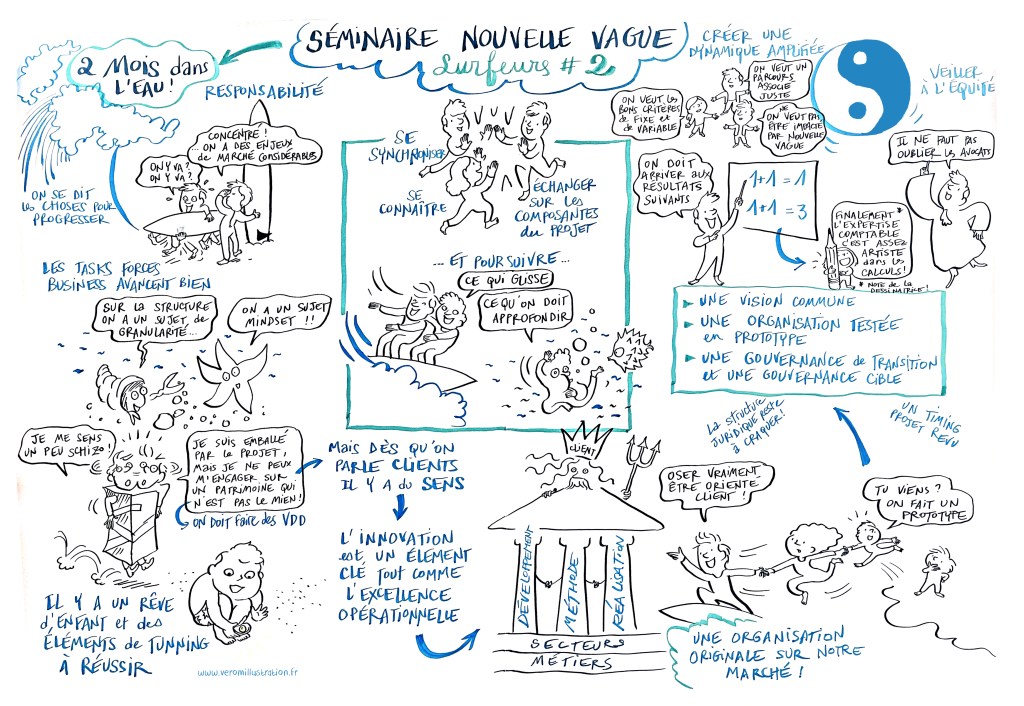 SÉMINAIRE NOUVELLE VAGUE
Surfeurs # 2
2 MOIS dans
L'EAU !
RESPONSABILITÉ
CONCENTRE !
ON A DES ENJEUX
DE MARCHÉ CONSIDÉRABLES
ON Y VA ?
ON Y VA ?
ON SE DIT
les CHOSES POUR
PROGRESSER
LES TASKS FORCES
BUSINESS AVANCENT BIEN
SUR LA STRUCTURE
ON A UN SUJET de
GRANULARITÉ...
ON A UN SUJET
MINDSET !!
JE ME SENS
UN PEU SCHIZO !
JE SUIS EMBALLÉ
PAR LE PROJET,
MAIS JE NE PEUX
M'ENGAGER SUR
UN PATRIMOINE QUI
N'EST PAS LE MIEN !
ON DOIT FAIRE des VDD
IL Y A UN RÊVE
d'ENFANT et des
ÉLÉMENTS de TUNNING
À RÉUSSIR
www.veromillustration.fr
SE
SYNCHRONISER
SE
CONNAÎTRE
ÉCHANGER
SUR LES
COMPOSANTES
du PROJET
... ET POURSUIVRE...
CE QUI GLISSE
CE QU'ON DOIT
APPROFONDIR
Mais DÈS QU'ON
PARLE CLIENTS
IL Y A du SENS
L'INNOVATION
est UN ÉLÉMENT
CLÉ TOUT COMME
L'EXCELLENCE
OPÉRATIONNELLE
CLIENT
DÉVELOPPEMENT
MÉTHODE
RÉALISATION
SECTEURS
MÉTIERS
CRÉER UNE
DYNAMIQUE AMPLIFIÉE
ON VEUT UN
PARCOURS
ASSOCIÉ
JUSTE
ON VEUT les
BONS CRITÈRES
de FIXE et
de VARIABLE
JE
ON VEUT PAS
ÊTRE IMPACTÉ
PAR NOUVELLE
VAGUE
VEILLER
À L'ÉQUITÉ
IL NE FAUT PAS
OUBLIER LES AVOCATS
ON DOIT
ARRIVER AUX
RÉSULTATS
SUIVANTS
1+1 = 1
1+1 = 3
FINALEMENT *
L'EXPERTISE
COMPTABLE
C'EST ASSEZ
ARTISTE
dans les
CALCULS !
* NOTE de la
DESSINATRICE !
► UNE VISION COMMUNE
► UNE ORGANISATION TESTÉE
en PROTOTYPE
► UNE GOUVERNANCE de TRANSITION
et UNE GOUVERNANCE CIBLE
La STRUCTURE
JURIDIQUE RESTE
à CRAQUER !
UN TIMING
PROJET REVU
OSER VRAIMENT
ÊTRE ORIENTÉ
CLIENT !
TU VIENS ?
ON FAIT UN
PROTOTYPE
UNE ORGANISATION
ORIGINALE SUR NOTRE
MARCHÉ !